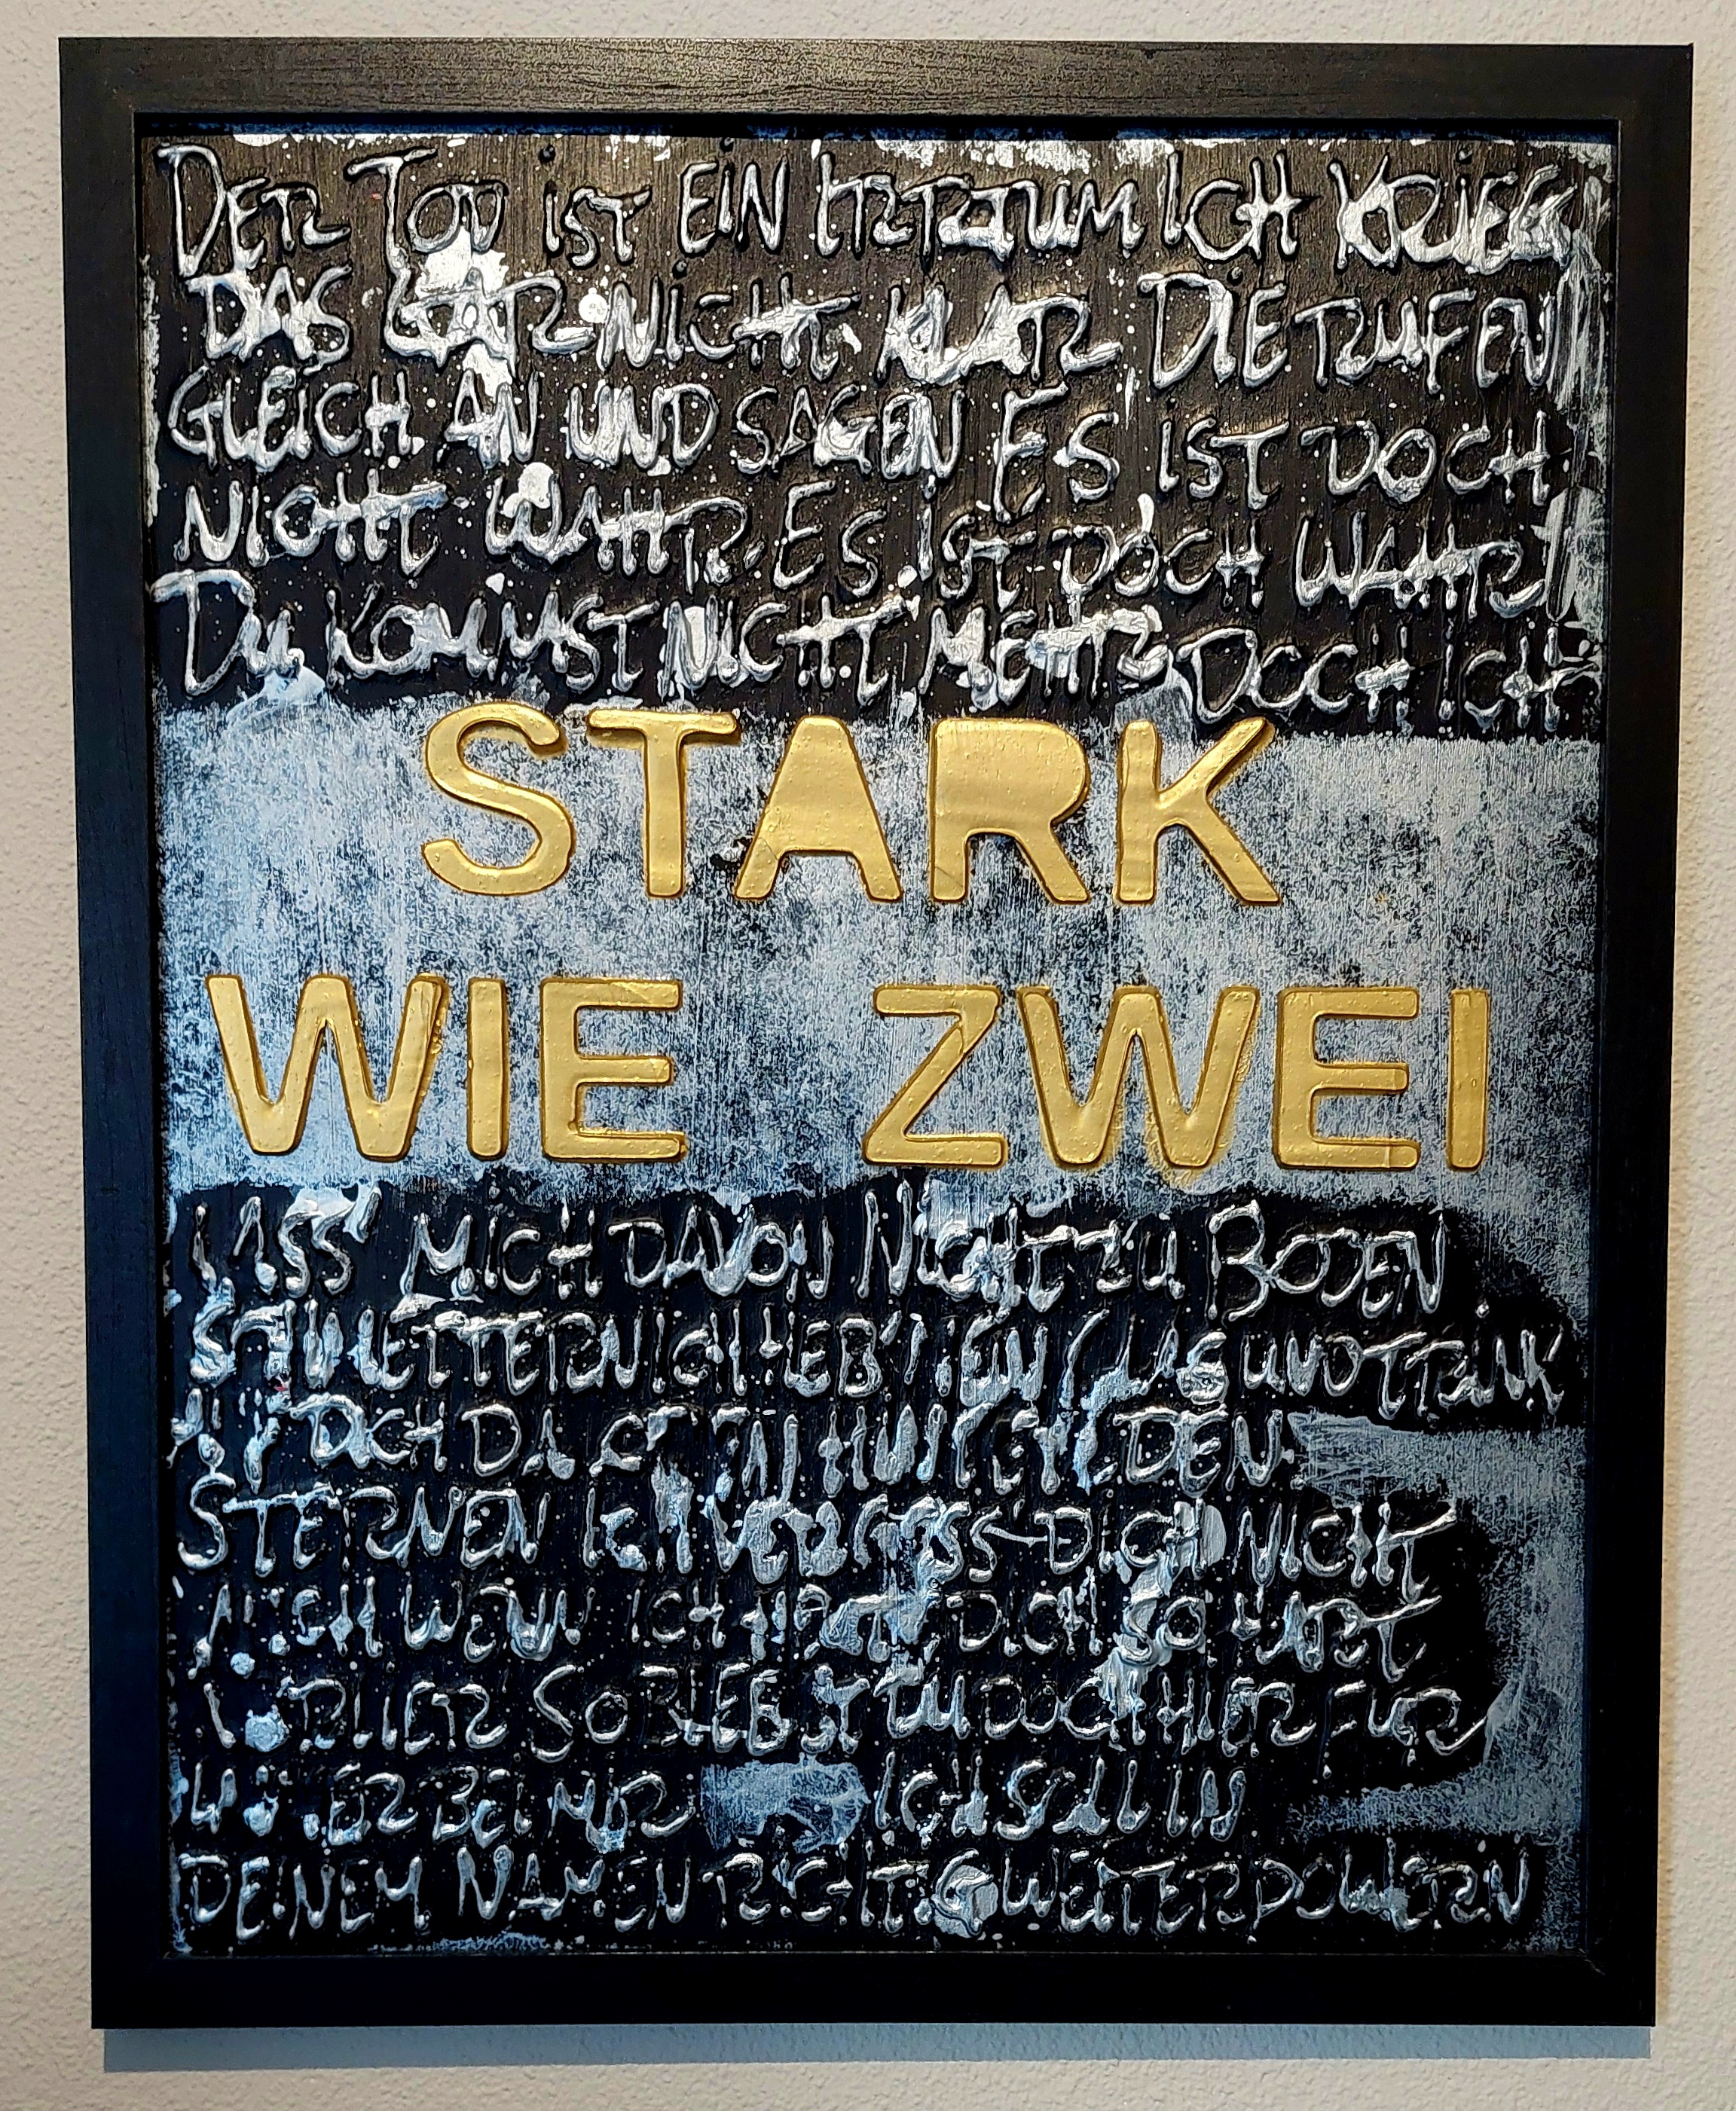 DER TOD IST EIN IRRTUM ICH KRIEG
DAS GAR NICHT KLAR DIE RUFEN
GLEICH AN UND SAGEN ES IST DOCH
NICHT WAHR. ES IST DOCH WAHR
DU KOMMST NICHT MEHR DOCH ICH
STARK
WIE ZWEI
LASS' MICH DAVON NICHT ZU BODEN
SCHMETTERN ICH HEB' MEIN GLAS UND TRINK
AUF DICH DA OBEN HINTER DEN
STERNEN ICH VERGESS DICH NICHT
AUCH WENN ICH DICH SO HART
VERLIER SO BLEBST DU DOCH HIER FUER
IMMER BEI MIR ICH SOLL IN
DEINEM NAMEN RICHTIG WEITERPOWERN